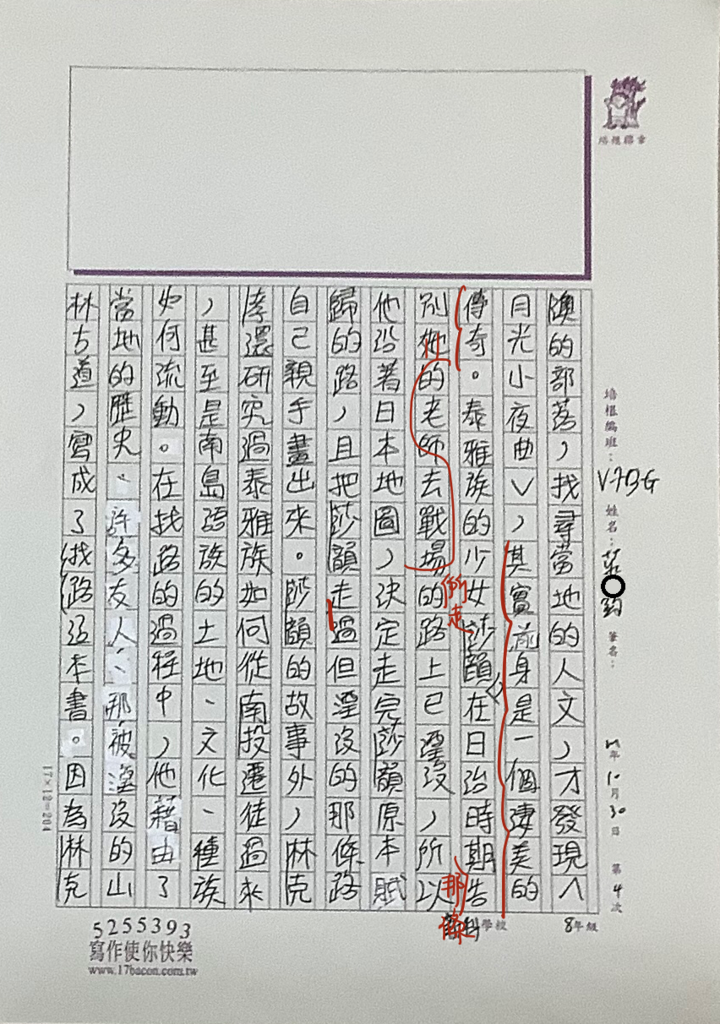 澳的部落，找尋當地的人文，才發現〈
月光小夜曲〉，其實前身是一個淒美的
傳奇。泰雅族的少女莎韻在日治時期告
別她的老師去戰場的路上已湮沒，所以
他沿著日本地圖，決定走完莎韻原本賦
歸的路，且把莎韻走過但湮沒的那條路
自己親手畫出來。莎韻的故事外，林克
孝還研究過泰雅族如何從南投遷徒過來
，甚至是南島語族的土地、文化、種族
如何流動。在找路的過程中，他藉由了
當地的歷史、許多友人、那被湮沒的山
林古道，寫成了找路這本書。因為林克
衝走
那條
培根聯章
培根編班：V73G 姓名： 筆名：
年10月30日 第4次
學校 8年級
17×12=204
5255393
寫作使你快樂
www.17bacon.com.tw